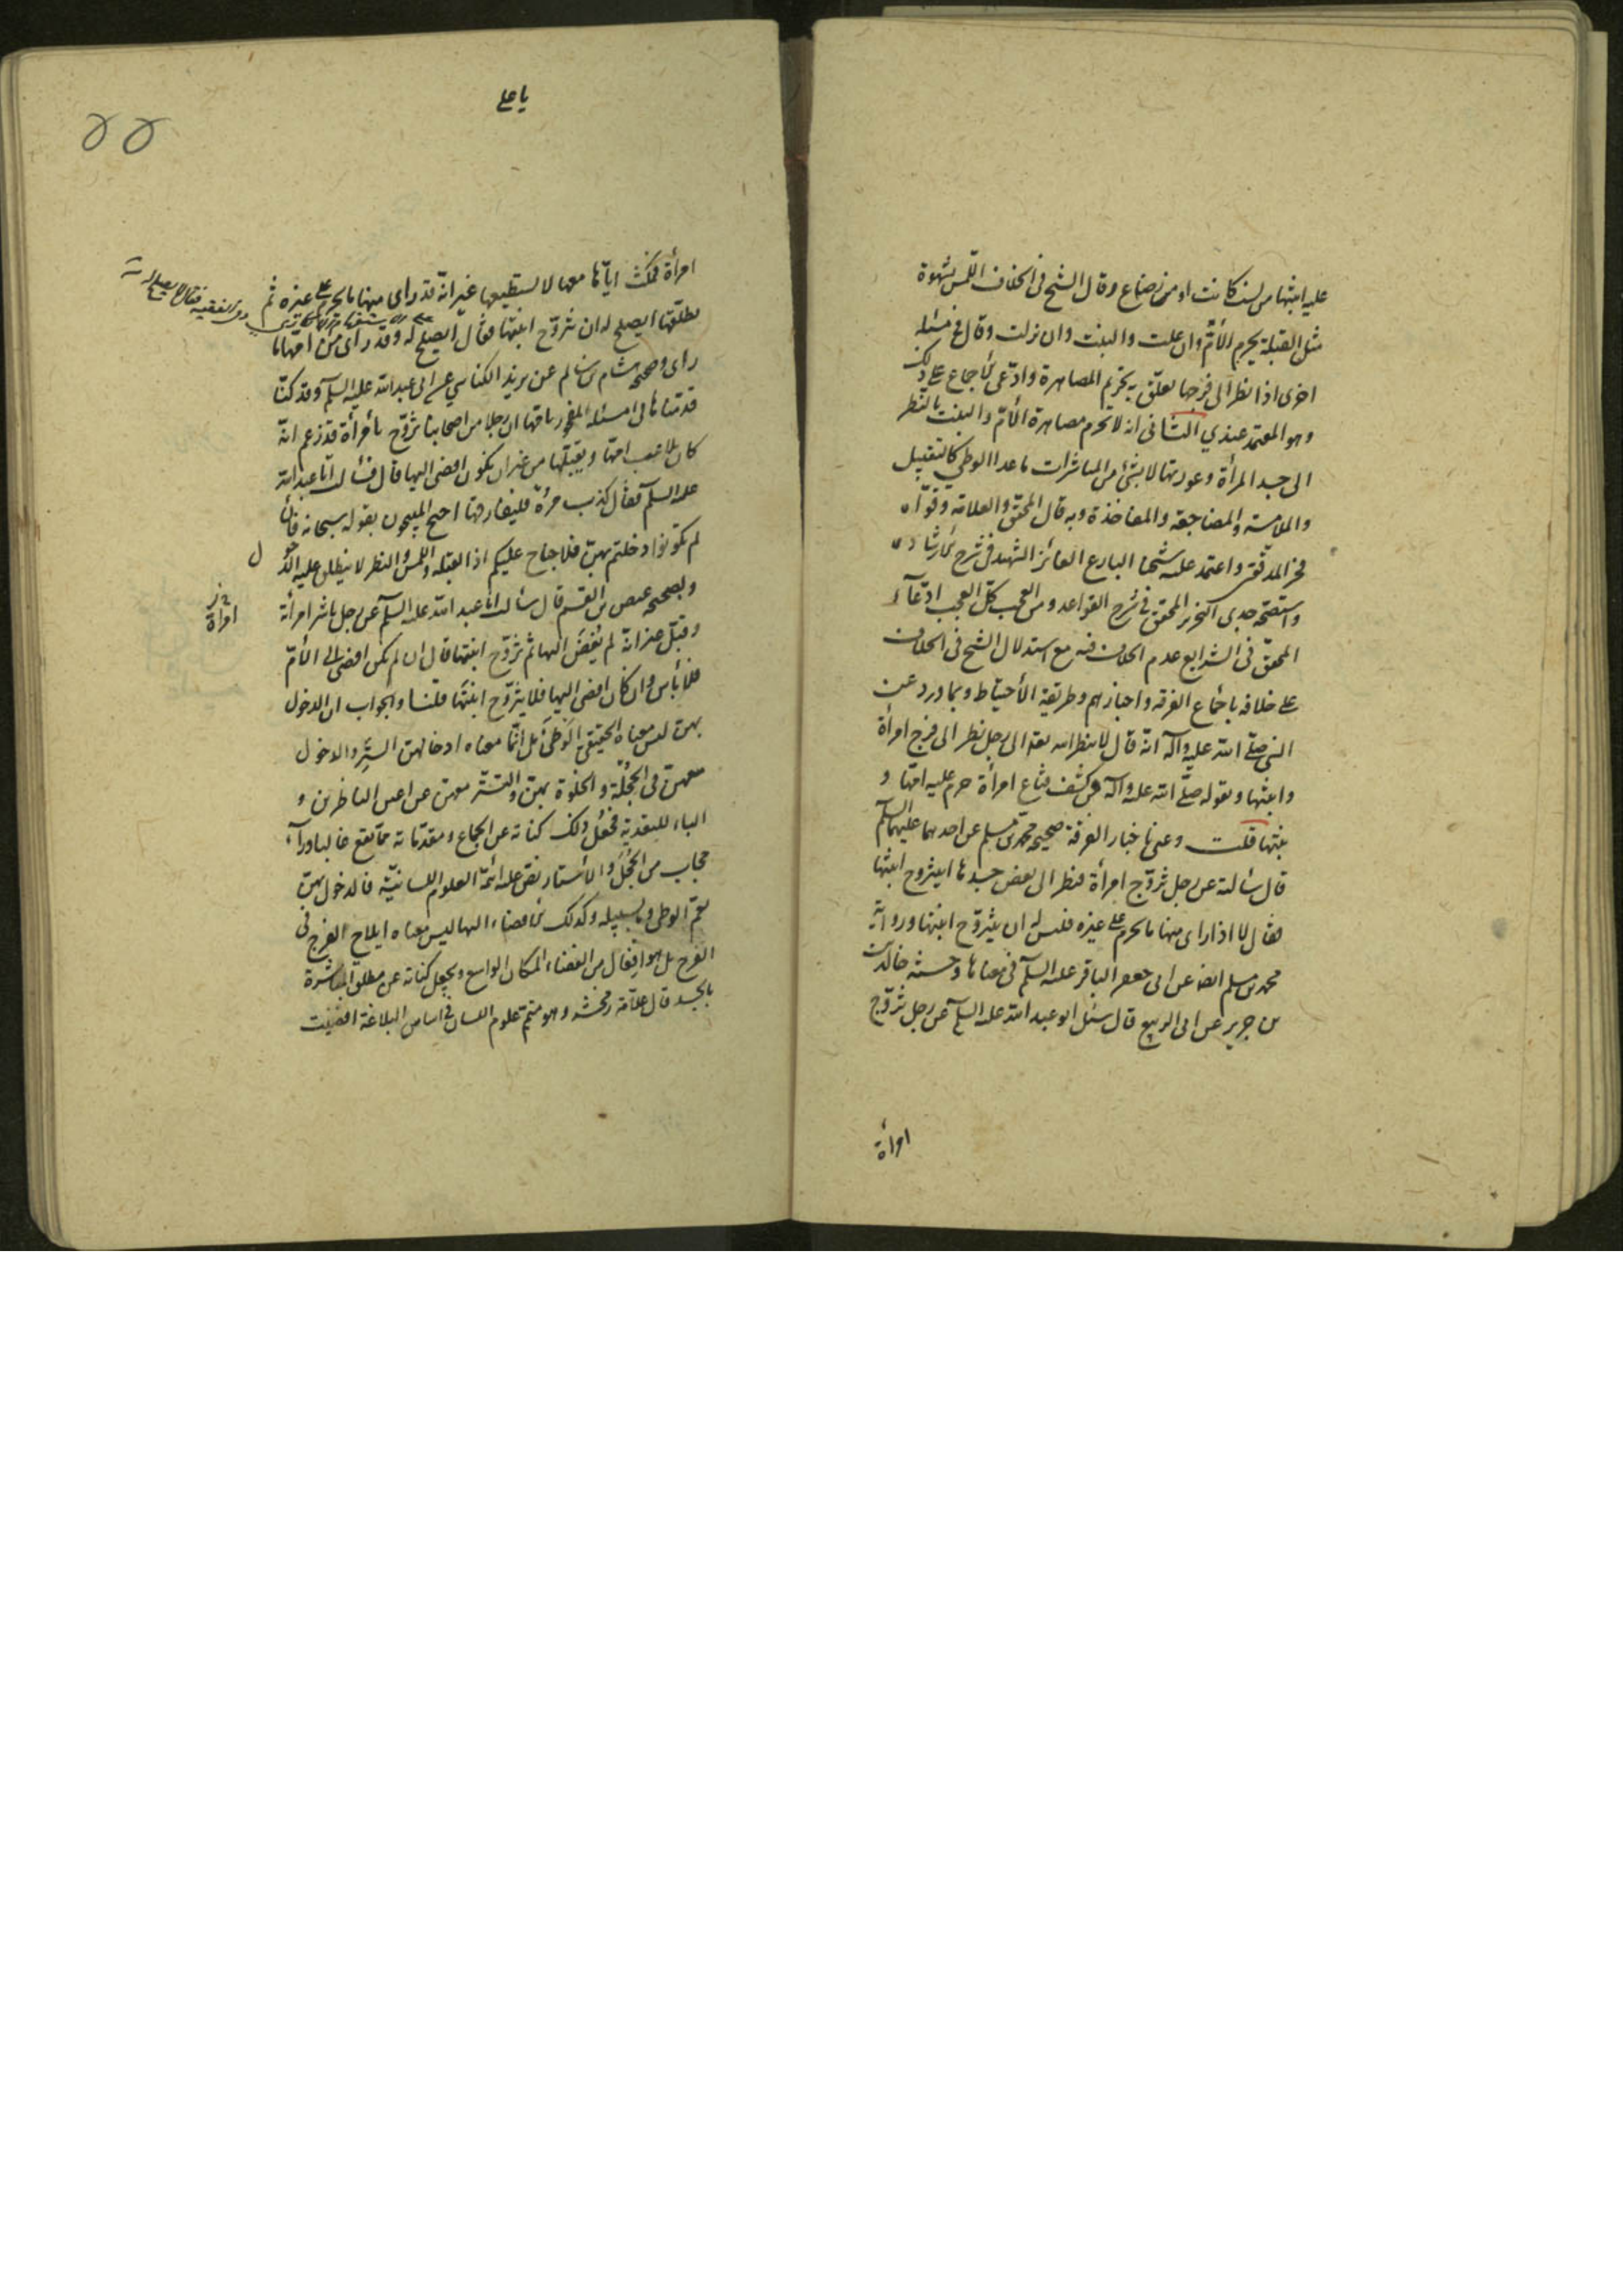 عليه ابنتها من نسب كانت او من رضاع وقال الشيخ فى الخلاف اللمس بشهوة
مثل القبلة يحرم الأم وان علت والبنت وان نزلت وقال فى مسئلة
اخرى اذا نظر الى فرجها تعلق به تحريم المصاهرة وادعى الأجماع على ذلك
وهو المعتمد عندي الثانى انه لا تحرم مصاهرة الأم والبنت بالنظر
الى جسد المرأة وعورتها لا بشئ من المباشرات ما عدا الوطي كالتقبيل
والملامسة والمضاجعة والمفاخذة وبه قال المحقق والعلامة وقواه
فخر المدققين واعتمد عليه شيخنا البارع الفائز الشهيد فى شرح الأرشاد
واستصحه جدى النحرير المحقق فى شرح القواعد ومن العجب كل العجب ادعاء
المحقق فى الشرايع عدم الخلاف فيه مع استدلال الشيخ فى الخلاف
على خلافه باجماع الفرقة واخبارهم وطريقة الأحتياط وبما ورد عن
النبى صلى الله عليه وآله انه قال لا ينظر الله تعالى الى رجل نظر الى فرج امرأة
وابنتها وبقوله صلى الله عليه وآله من كشف قناع امرأة حرم عليه امها و
بنتها قلت وعنى باخبار الفرقة صحيحة محمد بن مسلم عن احدهما عليهما السلم
قال سألته عن رجل تزوج امرأة فنظر الى بعض جسدها ايتزوج ابنتها
فقال لا اذا راى منها ما يحرم على غيره فليس له ان يتزوج ابنتها ورواية
محمد بن مسلم ايضا عن ابى جعفر الباقر عليه السلم فى معناها وحسنة خالد
بن جرير عن ابى الربيع قال سئل ابو عبد الله عليه السلم عن رجل تزوج
امرأة
يا على
۵۵
امرأة فمكث اياما معها لا يستطيعها غير انه قد راى منها ما يحرم على غيره ثم
يطلقها ايصلح له ان يتزوج ابنتها فقال ايصلح له وقد راى من امها ما
راى وصحيحة هشام بن سالم عن يزيد الكناسي عن ابى عبد الله عليه السلم وقد كنا
قدمناها فى مسئلة المفجور بامها ان رجلا من اصحابنا تزوج بامرأة قد زعم انه
كان يلاعب امها ويقبلها من غير ان يكون افضى اليها قال فسألت ابا عبد الله
عليه السلم فقال كذب مره فليفارقها احتج المبيحون بقوله سبحانه فان
لم تكونوا دخلتم بهن فلا جناح عليكم اذ القبلة واللمس والنظر لا ينطلق عليه الدخو
ل
وبصحيحة عيص بن القسم قال سألت ابا عبد الله عليه السلم عن رجل باشر امرأة
امرأة
وقبل غير انه لم يفض اليها ثم تزوج ابنتها قال ان لم يكن افضى الى الأم
فلا بأس وان كان افضى اليها فلا يتزوج ابنتها قلنا والجواب ان الدخول
بهن ليس معناه الحقيقى الوطئ بل انما معناه ادخالهن الستر والدخول
معهن فى الحجلة والخلوة بهن والتستر معهن عن اعين الناظرين و
الباء للتعدية فجعل ذلك كناية عن الجماع ومقدماته مما يقع غالبا وراء
حجاب من الحجل والأستار نص عليه ائمة العلوم اللسانية فالدخول بهن
يعم الوطى وما بسبيله وكذلك الأفضاء اليها ليس معناه ايلاج الفرج فى
الفرج بل هو افعال من الفضاء المكان الواسع ويجعل كناية عن مطلق المباشرة
بالجسد قال علامة زمخشر وهو متمم علوم اللسان فى اساس البلاغة افضيت